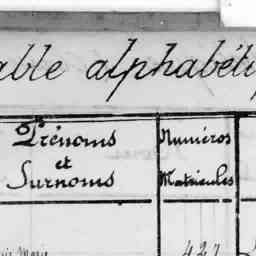 able alphabéti
Prénoms
et
Surnoms
Numéros
Matricules
Marie
427